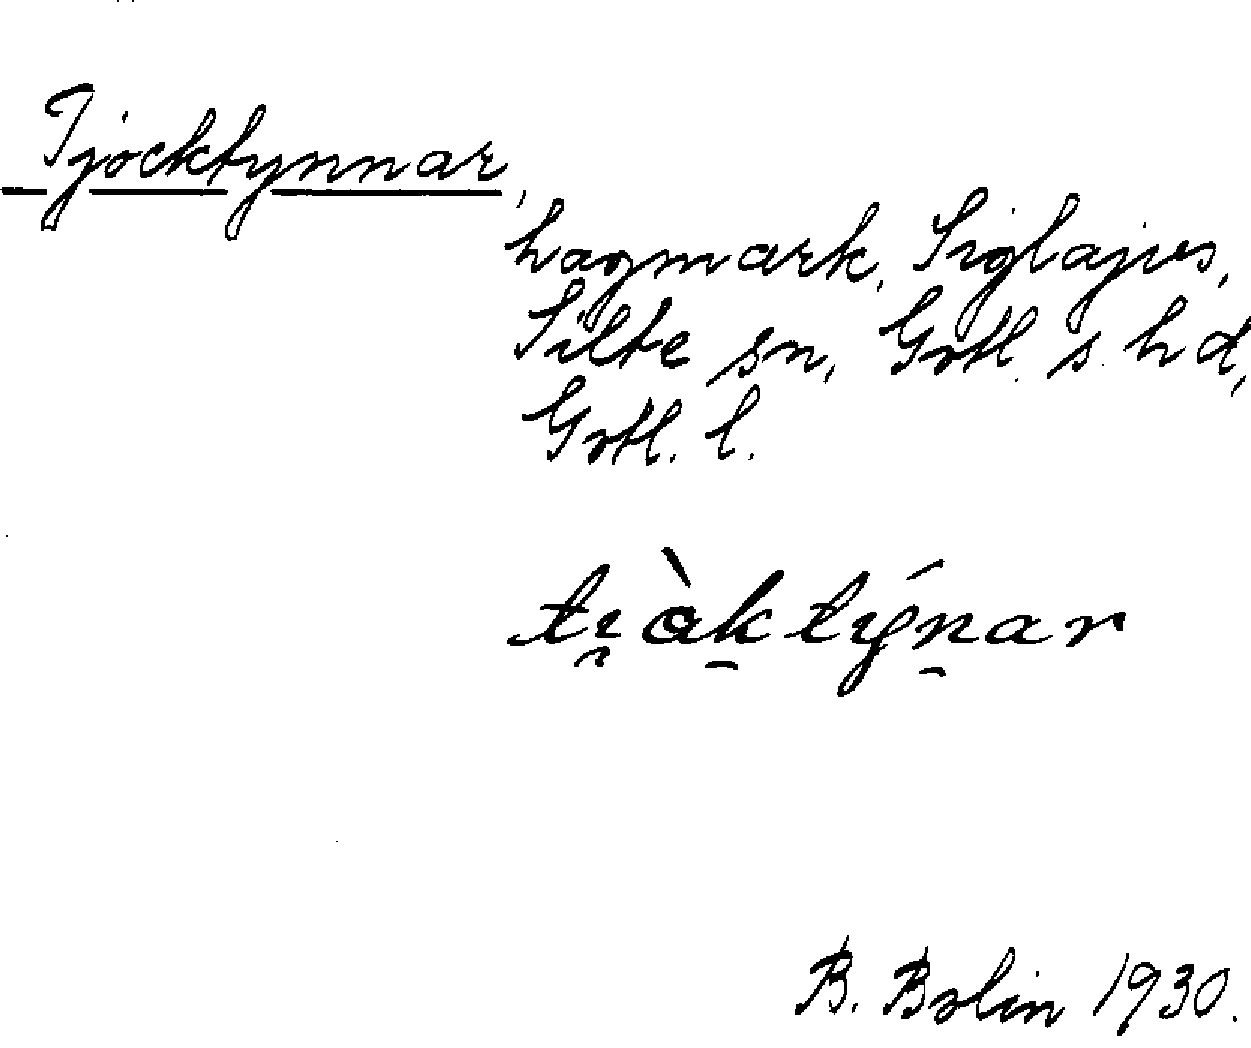 Tjocktynnar,
hagmark, Siglajvs,
Silte sn, Gotl. s. hd,
Gotl. l.
tı̯òk týnar
B. Bolin 1930.